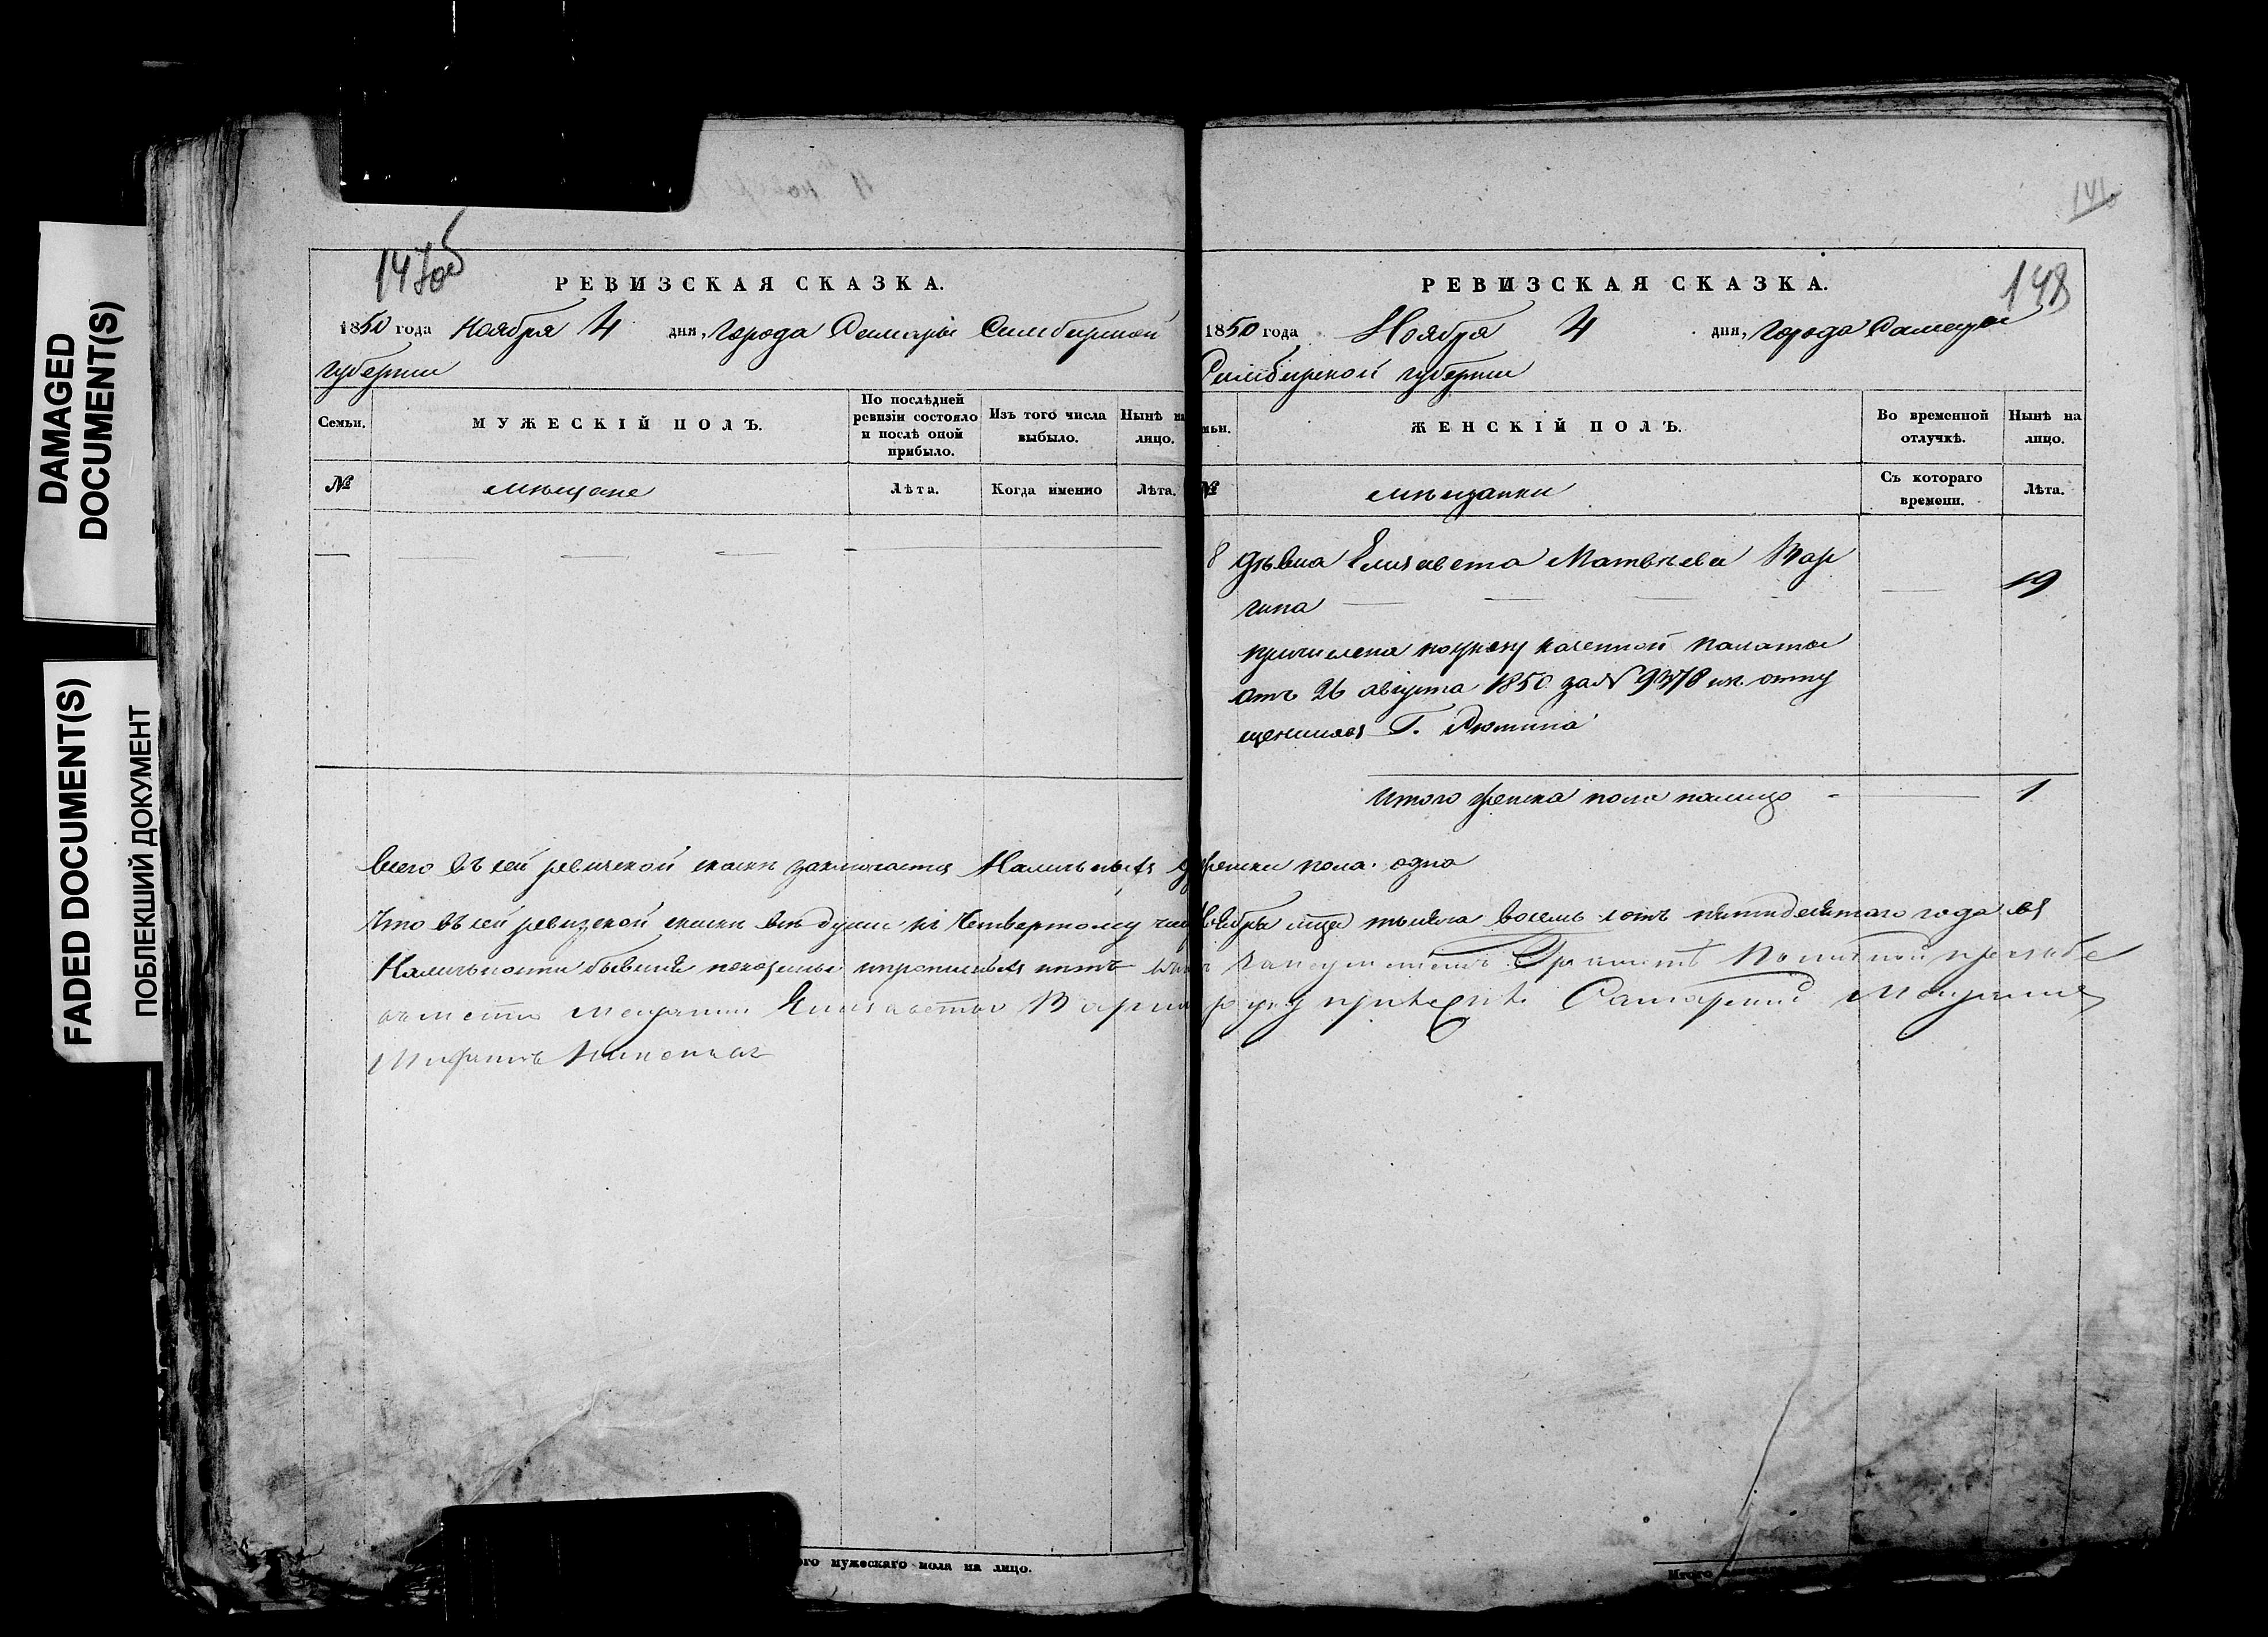 DAMAGED
DOCUMENT(S)
FADED DOCUMENT(S)
ПОБЛЕКШИЙ ДОКУМЕНТ
147об
РЕВИЗСКАЯ СКАЗКА.
1850 года Ноября 4 дня, города Самары Симбирской
губернии
Семьи.
МУЖЕСКІЙ ПОЛЪ.
По послѣдней
ревизіи состояло
и послѣ оной
прибыло.
Изъ того числа
выбыло.
Нынѣ на
лицо.
№
мѣщане
Лѣта.
Когда именно
Лѣта.
148
РЕВИЗСКАЯ СКАЗКА.
1850 года Ноября 4 дня, города Самары
Симбирской губернии
мьи.
ЖЕНСКІЙ ПОЛЪ.
Во временной
отлучкѣ.
Нынѣ на
лицо.
№
мѣщанки
Съ котораго
времени.
Лѣта.
8 дѣвка Елизавета Матвѣева Вар
гина
19
причислена по указу казенной палаты
отъ 26 августа 1850 за № 9378 изъ отпу
щенныхъ Г.
Итого женска пола налицо 1
Всего въ сей ревизской сказкѣ заключается Наличныхъ женска пола одна
Что въ сей ревизской сказкѣ всѣ души къ Четвертому тысяча восемь сотъ пятидесятаго года въ
Наличности бывшія показаны и прописныхъ нѣтъ
мещанки Елизаветы руку приложилъ Самарский Мещанин
ого мужескаго пола на лицо.
Итого